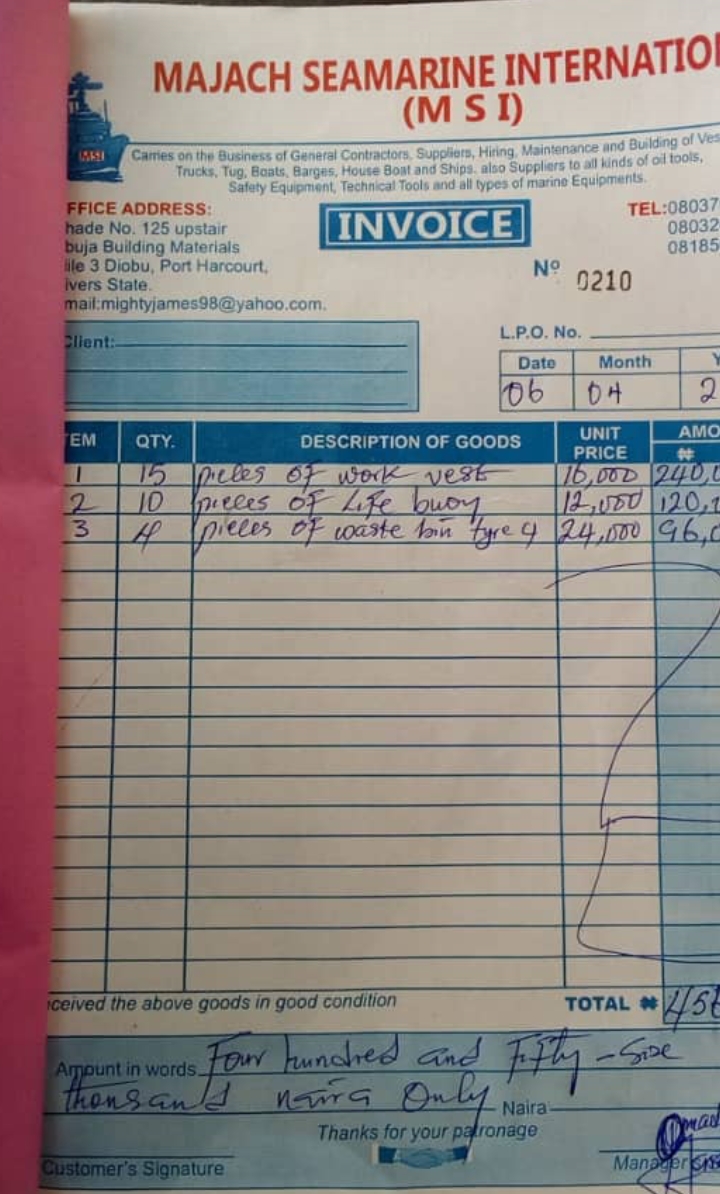 MAJACH SEAMARINE INTERNATIO
(M S I)
MSI
Carries on the Business of General Contractors, Suppliers, Hiring, Maintenance and Building of Ves
Trucks, Tug, Boats, Barges, House Boat and Ships. also Suppliers to all kinds of oil tools,
Safety Equipment, Technical Tools and all types of marine Equipments.
FFICE ADDRESS:
hade No. 125 upstair
buja Building Materials
ile 3 Diobu, Port Harcourt,
ivers State.
mail:mightyjames98@yahoo.com.
INVOICE
TEL:08037
08032
08185
Nº 0210
Client:
L.P.O. No.
Date Month Y
06 04 2
EM QTY. DESCRIPTION OF GOODS UNIT PRICE AMO ₦
1 15 pieces of work vest 16,000 240,0
2 10 pieces of Life buoy 12,000 120,
3 4 pieces of waste bin tyre 4 24,000 96,0
ceived the above goods in good condition TOTAL ₦ 456
Amount in words Four hundred and Fifty-Size
thousand naira Only Naira
Thanks for your patronage
Customer's Signature Manager